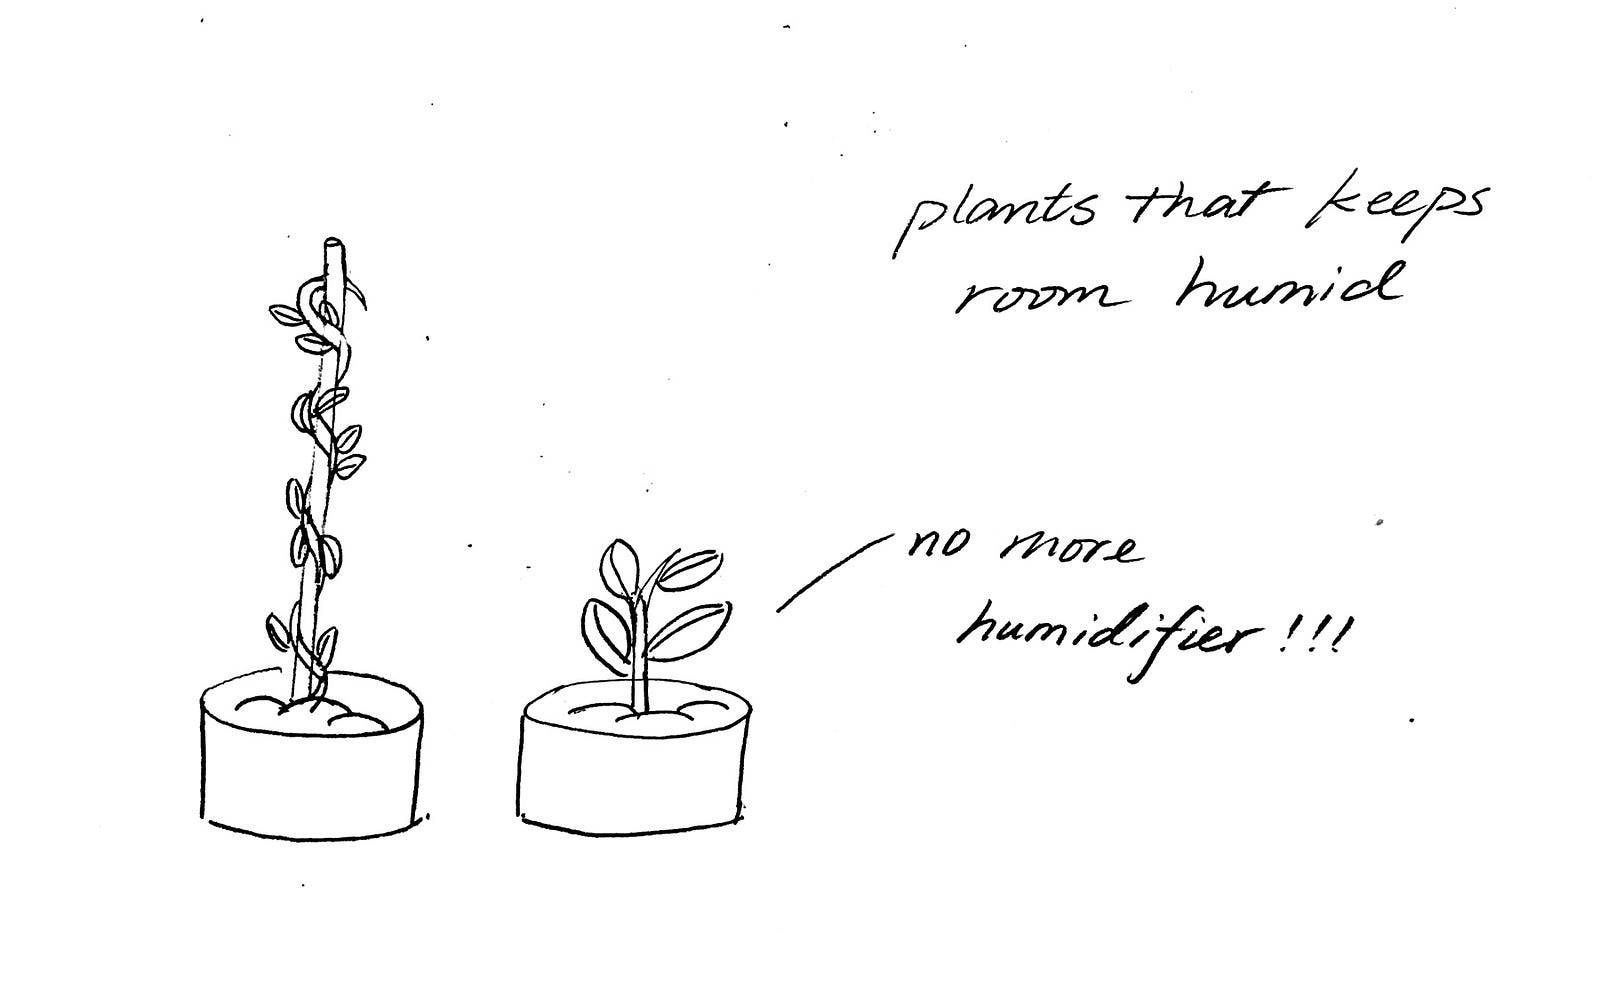 plants that keeps
room humid
no more
humidifier!!!